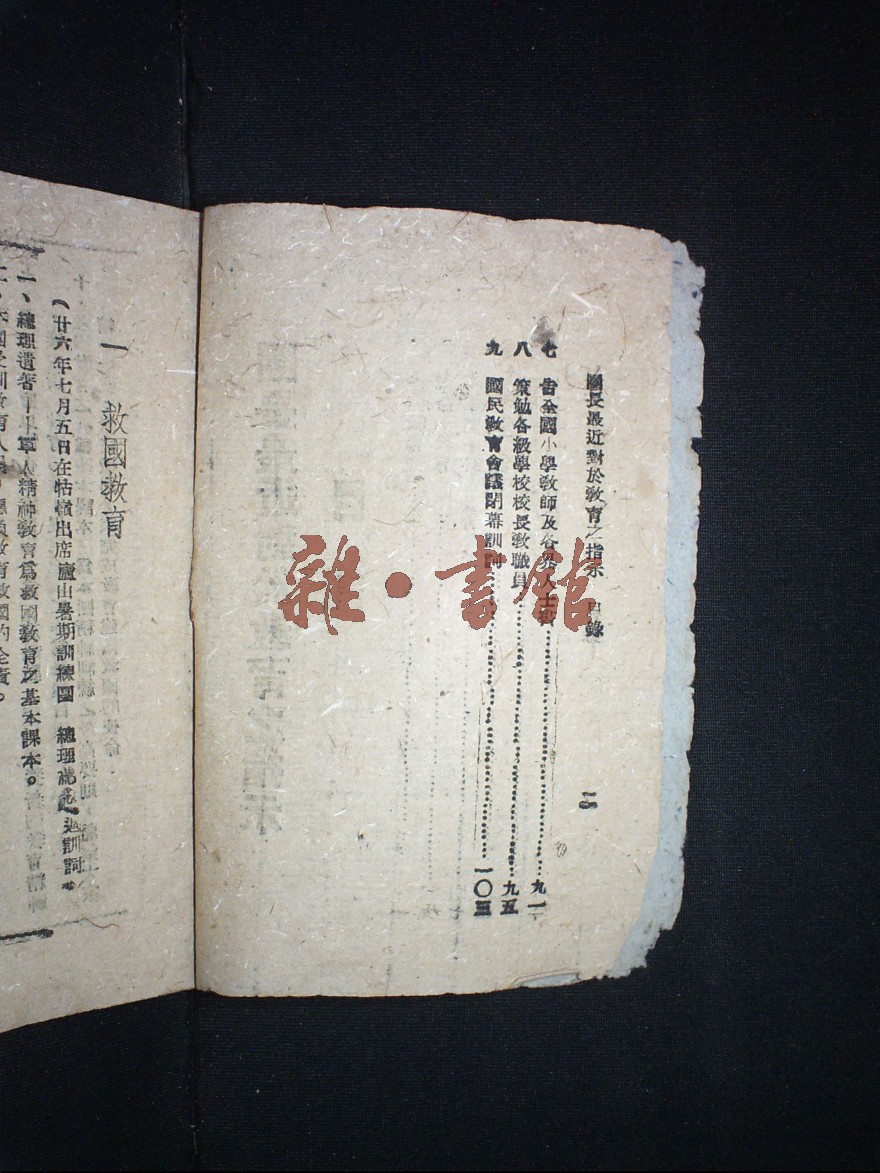 團長最近對於教育之指示 目錄
二
七 告全國小學教師及各界人士書 九一
八 策勉各級學校校長教職員 九五
九 國民教育會議閉幕訓詞 一〇三
一 救國教育
（廿六年七月五日在牯嶺出席廬山暑期訓練團 總理 週訓詞）
一、總理遺著 軍人精神教育爲救國教育之基本課本。
教育救國的全責。
雜·書館